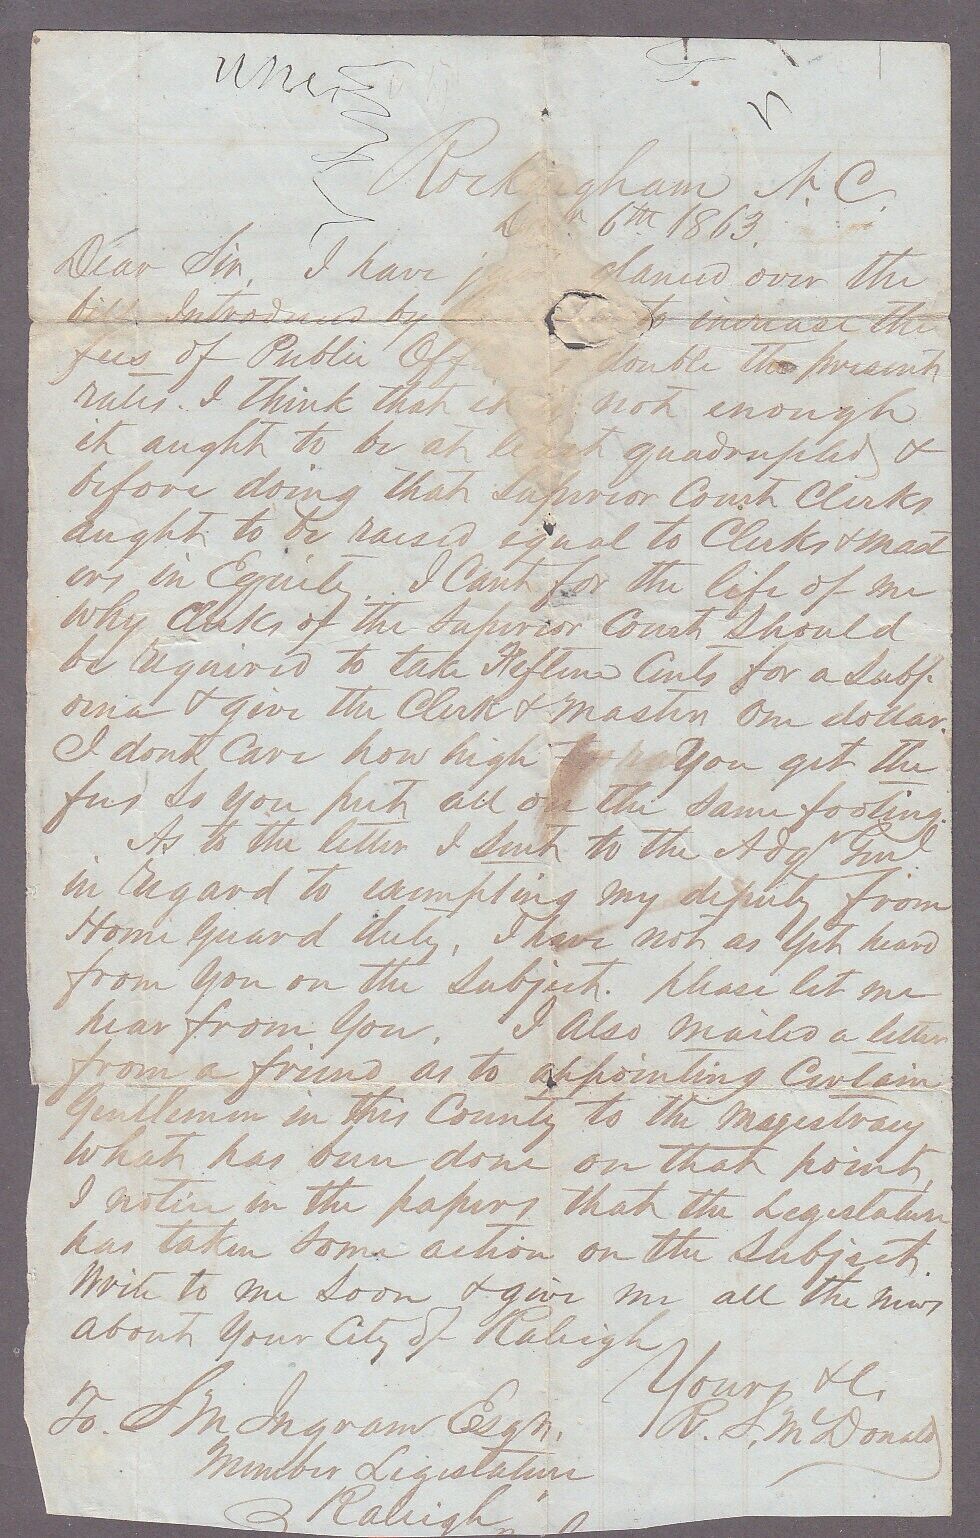 Rockingham N. C.
6th 1863.
Dear Sir, I have glanced over the
bill Introduced by to increase the
fees of Public Off double the present
rates. I think that it is not enough
it aught to be at least quadrupled &
before doing that Superior Court Clerks
aught to be raised equal to Clerks & Mast
ers in Equity. I Cant for the life of me
why Clerks of the Superior Court Should
be required to take fifteen Cents for a Subp
oena & give the Clerk & Master One dollar.
I dont Care how high You get the
fees So you put all on the Same footing.
As to the letter I Sent to the Adgt Genl
in regard to exempting my deputy from
Home Guard duty, I have not as yet heard
from You on the Subject. please let me
hear from You. I Also mailed a letter
from a friend as to appointing Certain
Gentlemen in this County to the Magestracy
What has been done on that point,
I notice in the papers that the Legislature
has taken Some action on the Subject.
Write to me Soon & give me all the news
about Your City of Raleigh
Yours &c.
To. S M Ingram Esqr. R. S. McDonald
Member Legislature
Raleigh